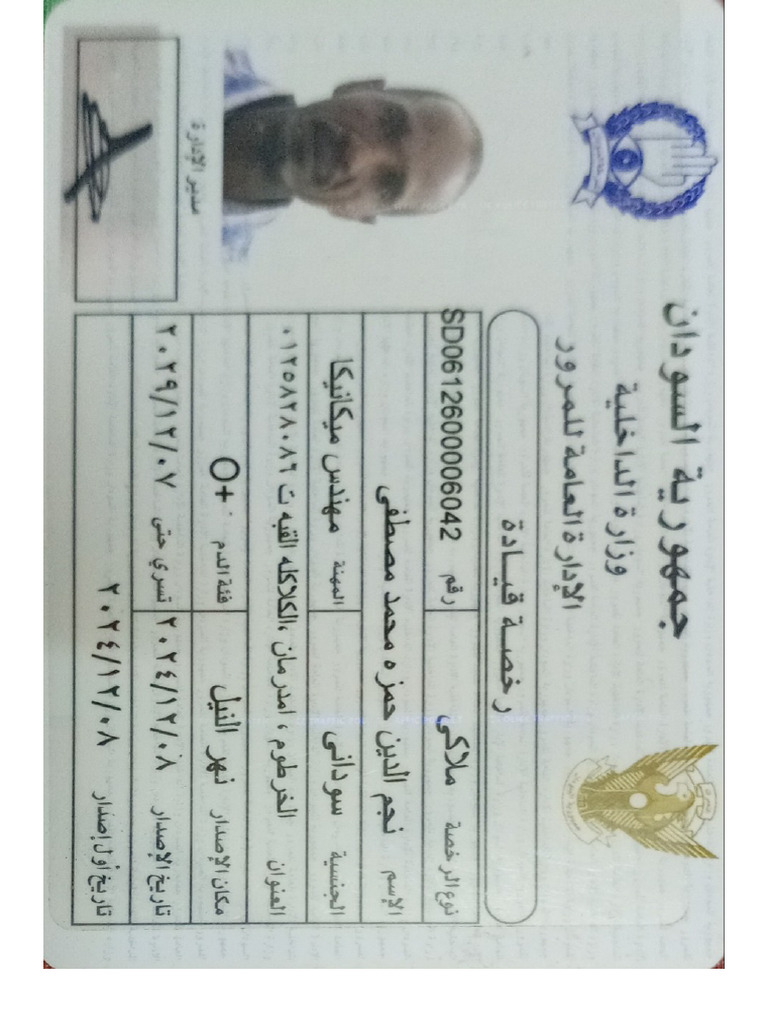 جمهورية السودان
وزارة الداخلية
الإدارة العامة للمرور
رخصة قيادة
نوع الرخصة ملاكي رقم SD0612600006042
الإسم نجم الدين حمزه محمد مصطفى
الجنسية سودانى المهنة مهندس ميكانيكا
العنوان الخرطوم ، امدرمان ،الكلاكله القبه ت ٠١٢٥٨٢٨٠٨٦
مكان الإصدار نهر النيل فئة الدم O+
تاريخ الإصدار ٢٠٢٤/١٢/٠٨ تسري حتى ٢٠٢٩/١٢/٠٧
تاريخ أول إصدار ٢٠٢٤/١٢/٠٨
مدير الإدارة